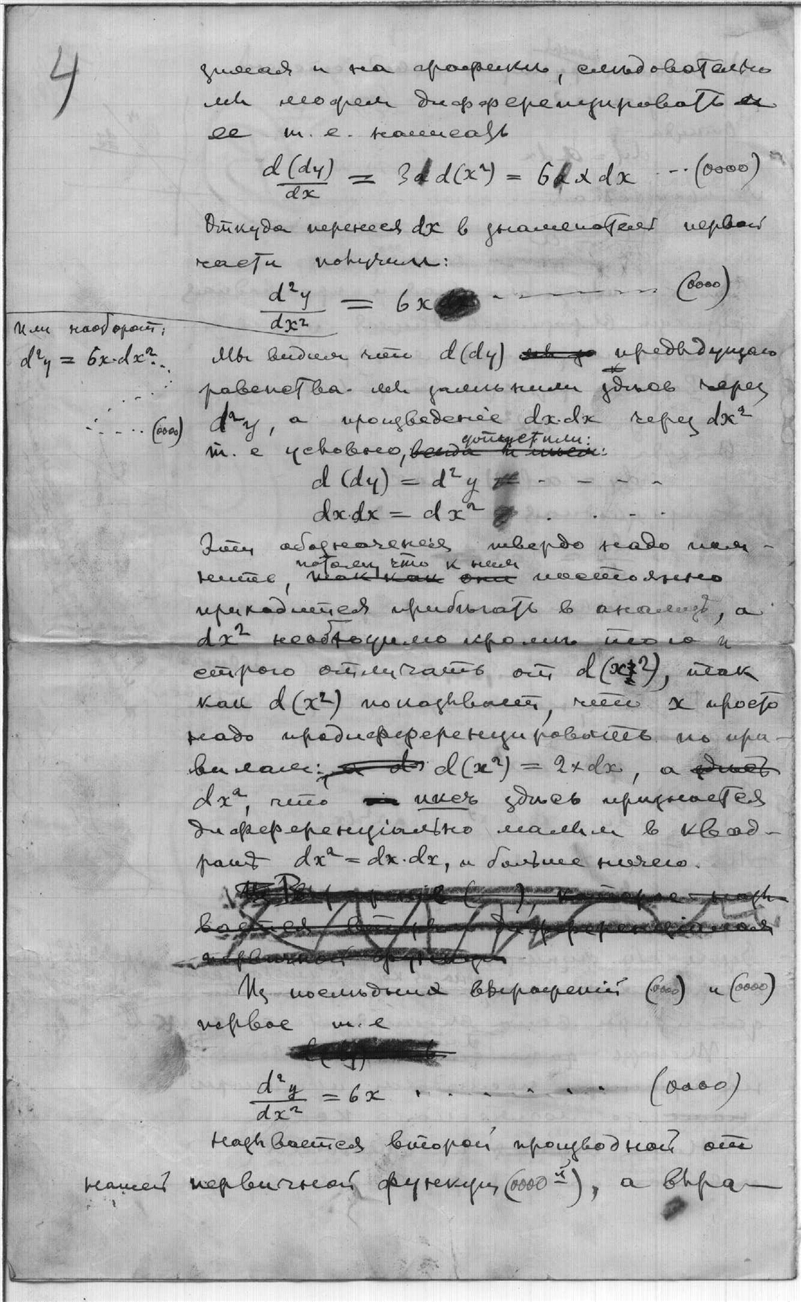 4
зимая и на графики, следовательно
мы можем дифференцировать и
ее т. е. написать
d(dy)/dx = 3 d(x²) = 6x dx ···(0000)
Откуда перенеся dx в знаменатель первой
части получим:
d²y/dx² = 6x ········ (0000)
Или наоборот:
d²y = 6x·dx²...
······ (0000)
Мы видим что d(dy) предыдущего
равенства мы заменили здесь через
d²y, а произведение dx·dx через dx²
т. е условно, допустили:
d(dy) = d²y - - - -
dx·dx = dx² . . - .
Эти обозначения твердо надо пом-
нить, потому что к ним постоянно
приходится прибегать в анализе, а
dx² необходимо кроме того и
строго отличать от d(x²), так
как d(x²) показывает, что x просто
надо продифференцировать по пра-
вилам: d(x²) = 2x dx, а
dx², что икс здесь признается
дифференциально малым в квад-
рате dx² = dx·dx, и больше ничего.
Из последних выражений (0000) и (0000)
первое т. е
d²y/dx² = 6x · · · · · · (0000)
называется второй производной от
нашей первичной функции (0000 й), а выра-